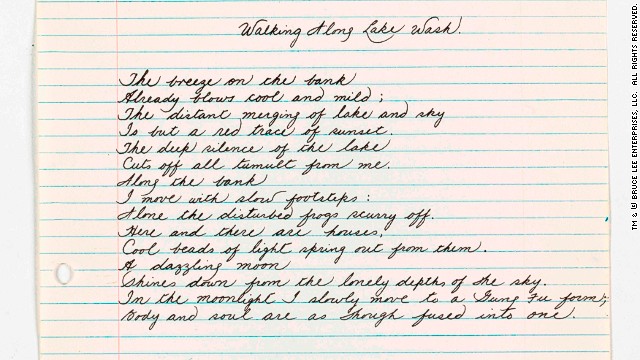 Walking Along Lake Wash.
The breeze on the bank
Already blows cool and mild;
The distant merging of lake and sky
Is but a red trace of sunset.
The deep silence of the lake
Cuts off all tumult from me.
Along the bank
I move with slow footsteps:
Alone the disturbed frogs scurry off.
Here and there are houses,
Cool beads of light spring out from them.
A dazzling moon
Shines down from the lonely depths of the sky.
In the moonlight I slowly move to a Gung Fu form;
Body and soul are as though fused into one.
TM & © BRUCE LEE ENTERPRISES, LLC. ALL RIGHTS RESERVED.